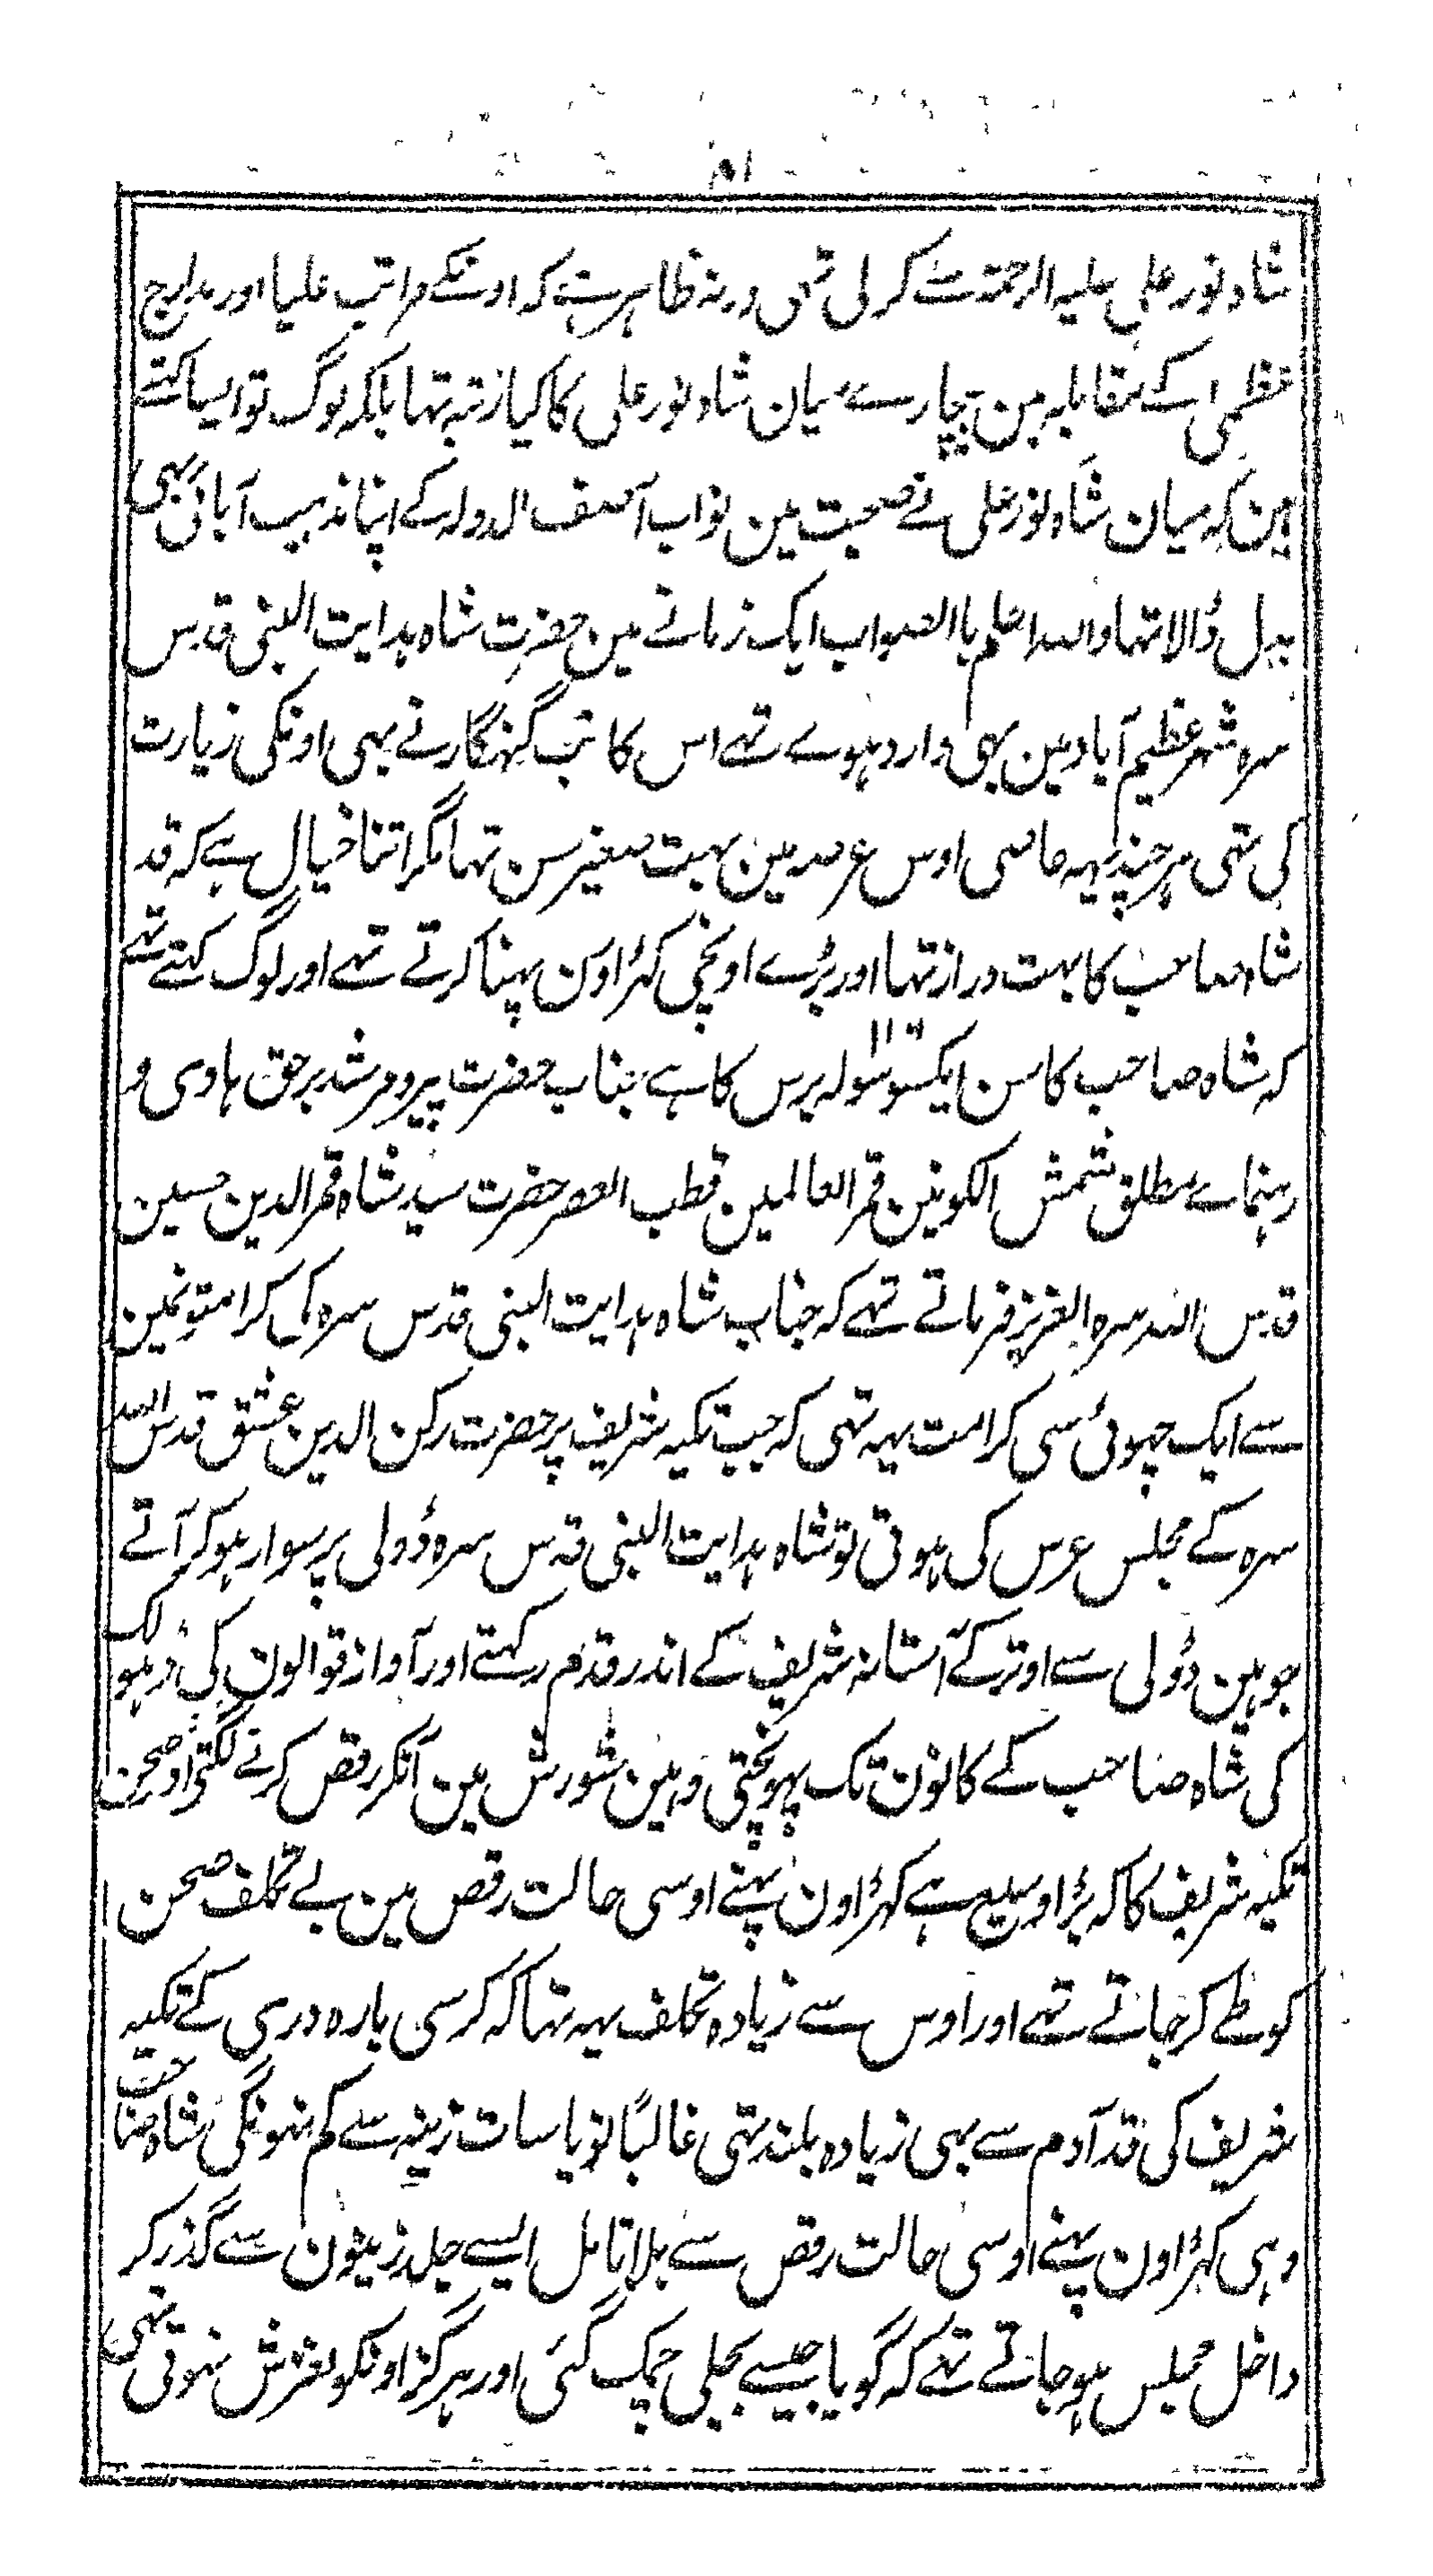 شاہ نور علی علیہ الرحمۃ سے کر لی تھی ورنہ ظاہر ہے کہ اونکے مراتب علیا اور مدارج
عظمی اسکے مقابلہ مین بیچارے میان شاہ نور علی کا کیا رتبہ تھا بلکہ لوگ تو ایسا کہتے
ہین کہ میان شاہ نور علی نے صحبت مین نواب آصف الدولہ کے اپنا مذہب آبائی بہی
بدل ڈالا تہا واللہ اعلم باالصواب ایک زمانے مین حضرت شاہ ہدایت النبی قدس
سرہ شہر عظیم آباد مین بھی وارد ہوے تہے اس کاتب گنہگار نے بہی اونکی زیارت
کی تہی ہر چند یہہ عاصی اوس عرصہ مین بہت صغیر سن تہا مگر اتنا خیال ہے کہ قد
شاہ صاحب کا بہت دراز تہا اور بڑے اونچی کہڑاون پہنا کرتے تہے اور لوگ کہتے تہے
کہ شاہ صاحب کا سن ایکسو سولہ برس کا ہے جناب حضرت پیر و مرشد برحق ہادی و
رہنماے مطلق شمش الکونین قمر العالمین قطب العصر حضرت سید شاہ قمر الدین حسین
قدس اللہ سرہ العزیز فرماتے تہے کہ جناب شاہ ہدایت النبی قدس سرہ کی کرامتونمین
سے ایک چہوٹی سی کرامت یہہ تہی کہ جب تکیہ شریف پر حضرت رکن الدین عشق قدس اللہ
سرہ کے مجلس عرس کی ہوتی تو شاہ ہدایت النبی قدس سرہ ڈولی پر سوار ہوکر آتے
جوہین ڈولی سے اوتر کے آستانہ شریف کے اندر قدم رکہتے اور آواز قوالون کی ڈہولک
کی شاہ صاحب کے کانون تک پہونچتی وہین شورش مین آنکر رقص کرنے لگتی اور صحن
تکیہ شریف کا کہ بڑا وسیع ہے کہڑاون پہنے اوسی حالت رقص مین بے تکلف صحن
کو طے کر جاتے تہے اور اوس سے زیادہ تکلف یہہ تہا کہ کرسی بارہ دری کے تکیہ
شریف کی قد آدم سے بہی زیادہ بلند تہی غالباً نو یا سات زینہ سے کم نہونگی شاہ صاحب
وہی کہڑاون پہنے اوسی حالت رقص سے بلا تامل ایسے جلد زینون سے گذر کر
داخل مجلس ہو جاتے تہے کہ گویا جیسے بجلی چمک گئی اور ہرگز اونکو لغزش نہوتی تہی